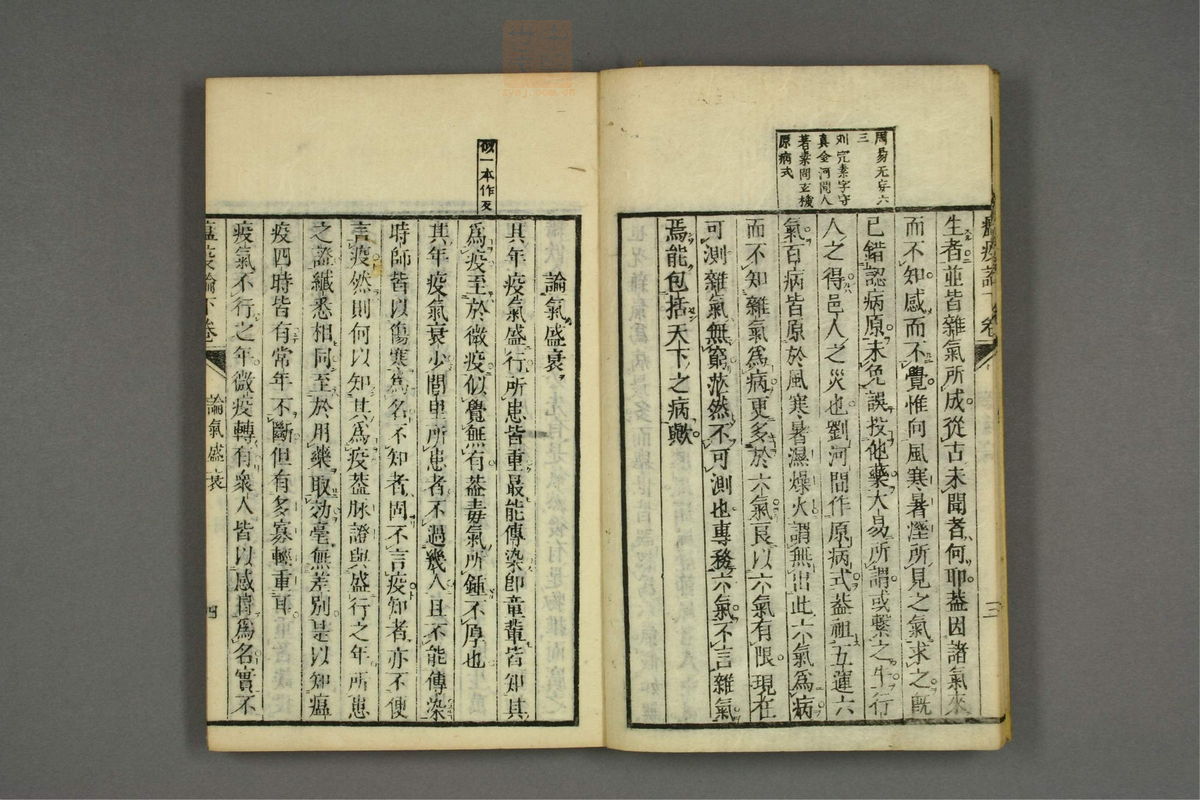 周易无妄六
三
刘完素字守
真金河間人
著素問玄機
原病式
瘟疫論下卷
三
生者並皆雜氣所成從古未聞者何耶葢因諸氣來
而不知感而不覺惟向風寒暑溼所見之氣求之既
已錯認病原未免誤投他藥大易所謂或繫之牛行
人之得邑人之災也劉河間作原病式葢祖五運六
氣百病皆原於風寒暑濕燥火謂無出此六氣為病
而不知雜氣為病更多於六氣良以六氣有限現在
可測雜氣無窮茫然不可測也專務六氣不言雜氣
焉能包括天下之病歟
似一本作反
論氣盛衰
其年疫氣盛行所患皆重最能傳染即童輩皆知其
為疫至於微疫似覺無有葢毒氣所鍾不厚也
其年疫氣衰少閭里所患者不過幾人且不能傳染
時師皆以傷寒為名不知者固不言疫知者亦不便
言疫然則何以知其為疫葢脉證與盛行之年所患
之證纎悉相同至於用藥取効毫無差別是以知瘟
疫四時皆有常年不斷但有多寡輕重耳
疫氣不行之年微疫轉有衆人皆以感冒為名實不
瘟疫論下卷
論氣盛衰
四